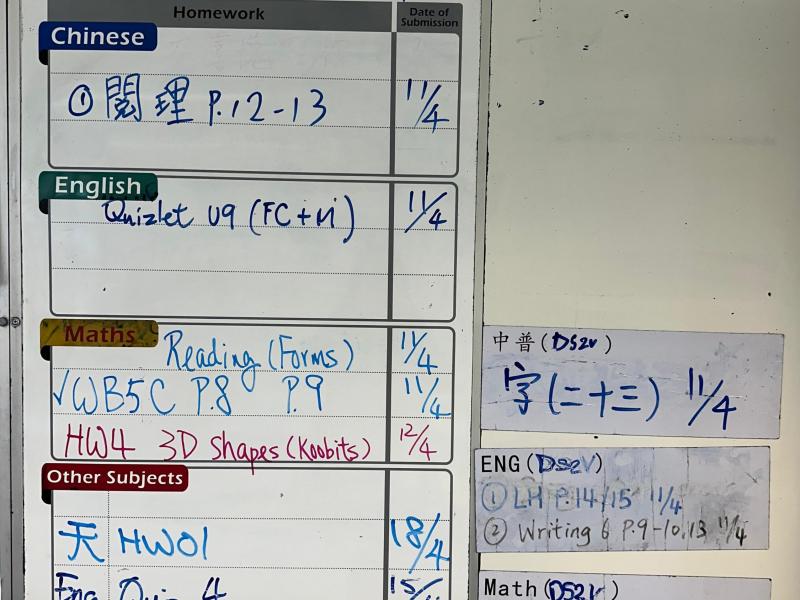 Homework Date of Submission
Chinese
① 閱理 P.12-13 11/4
English
Quizlet U9 (FC+M) 11/4
Maths
Reading (Forms) 11/4
✓WB5C P.8 P.9 11/4
HW4 3D shapes (Koobits) 12/4
Other Subjects
天 HW01 18/4
Eng Quiz 4 15/4
中普(DS2V)
字(二十三) 11/4
ENG(DS2V)
① LH P.14/15 11/4
② Writing 6 P.9-10,13 11/4
Math(DS2V)